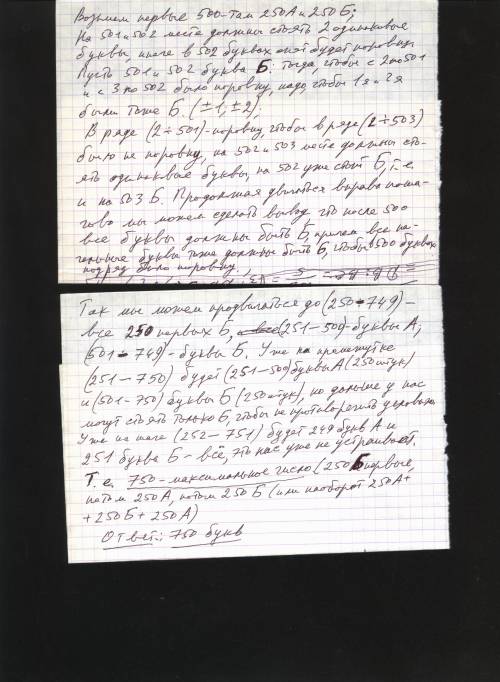 Возьмем первые 500 - там 250А и 250Б;
На 501 и 502 места должны стоять 2 одинаковые
буквы, иначе в 502 буквах опять будет поровну.
Пусть 501 и 502 буква Б: тогда, чтобы с 2 по 501
и с 3 по 502 было поровну, надо, чтобы 1я и 2я
были тоже Б. (±1, ±2)
В ряде (2÷501) - поровну, чтобы в ряде (2÷503)
было не поровну, на 502 и 503 места должны сто-
ять одинаковые буквы, на 502 уже стоит Б, т.е.
и на 503 Б. Продолжая двигаться вправо поша-
гово мы можем сделать вывод что после 500
все буквы должны быть Б, причем все на-
чальные буквы тоже должны быть Б, чтобы 500 буквах
подряд было поровну.
Так мы можем продвигаться до (250-749) -
все 250 первых Б, (251-500) - буквы А,
(501-749) - буквы Б. Уже на промежутке
(251-750) будет (251-500) буквы А (250 штук)
и (501-750) буквы Б (250 штук), но дальше у нас
могут стоять только Б, чтобы не противоречить условию
Уже на шаге (252-751) будет 249 букв А и
251 буква Б - всё, это нас уже не устраивает.
Т.е. 750 - максимальное число (250 Б первые,
потом 250А, потом 250 Б (или наоборот 250А+
+250Б+250А)
Ответ: 750 букв